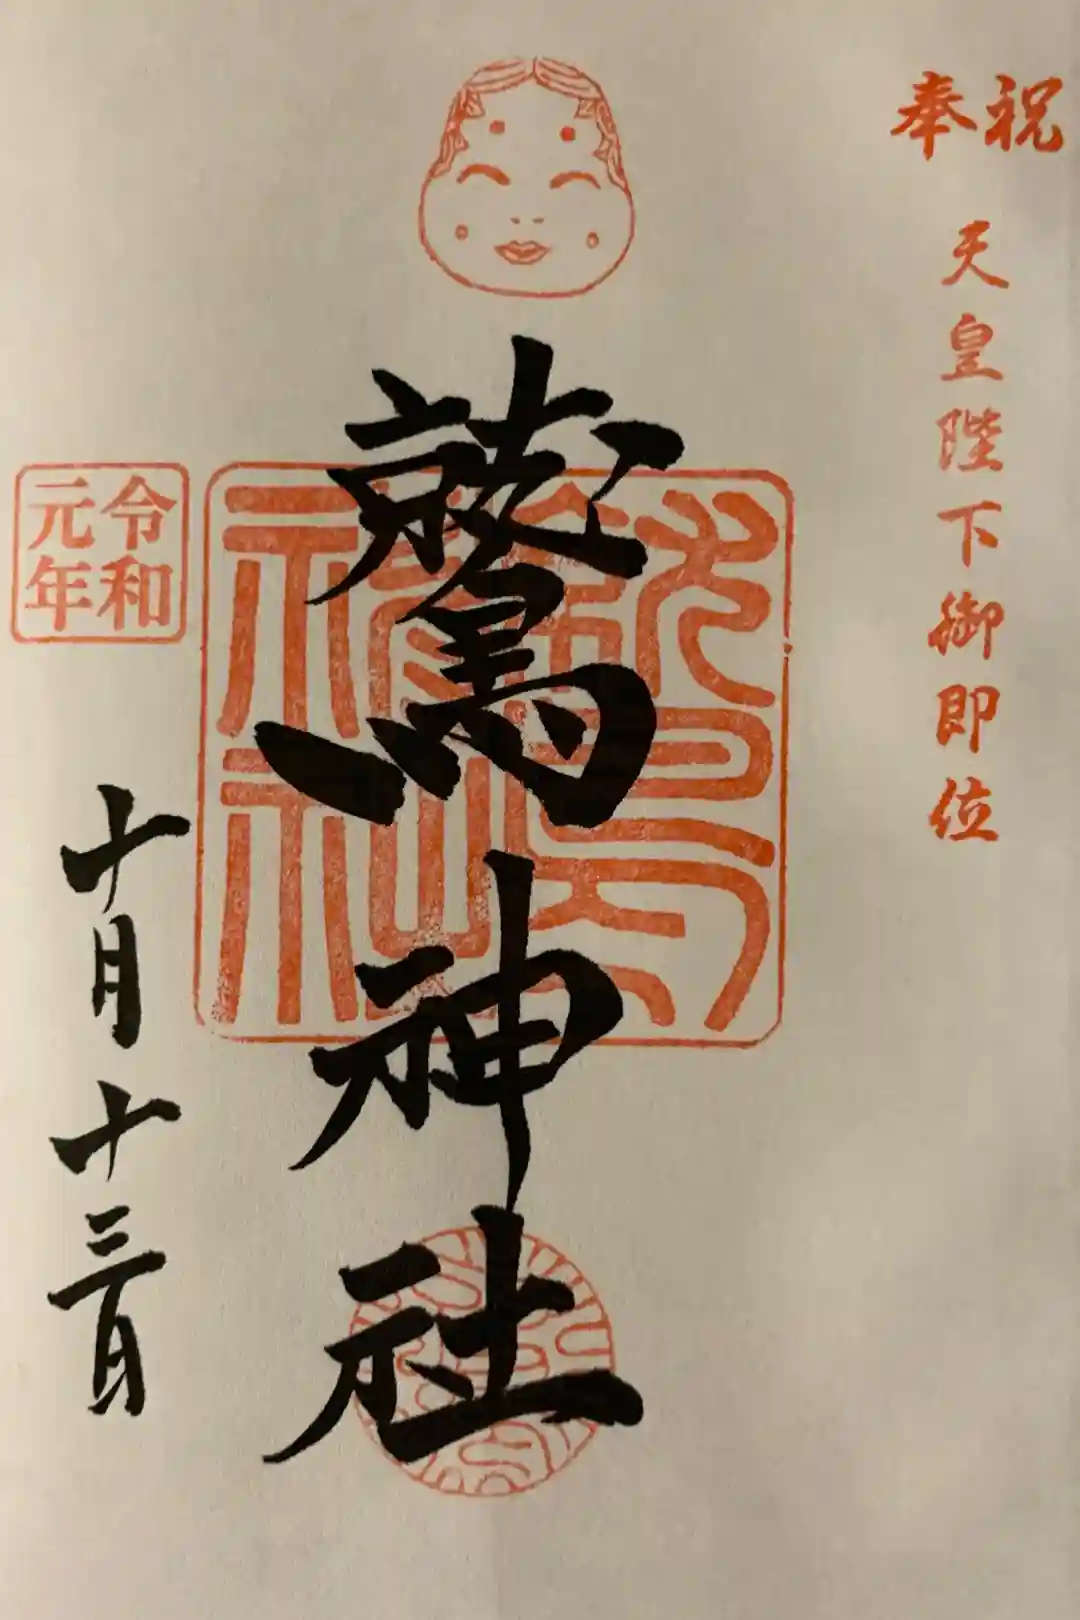 奉祝
天皇陛下御即位
鷲神社
令和
元年
十月十三日